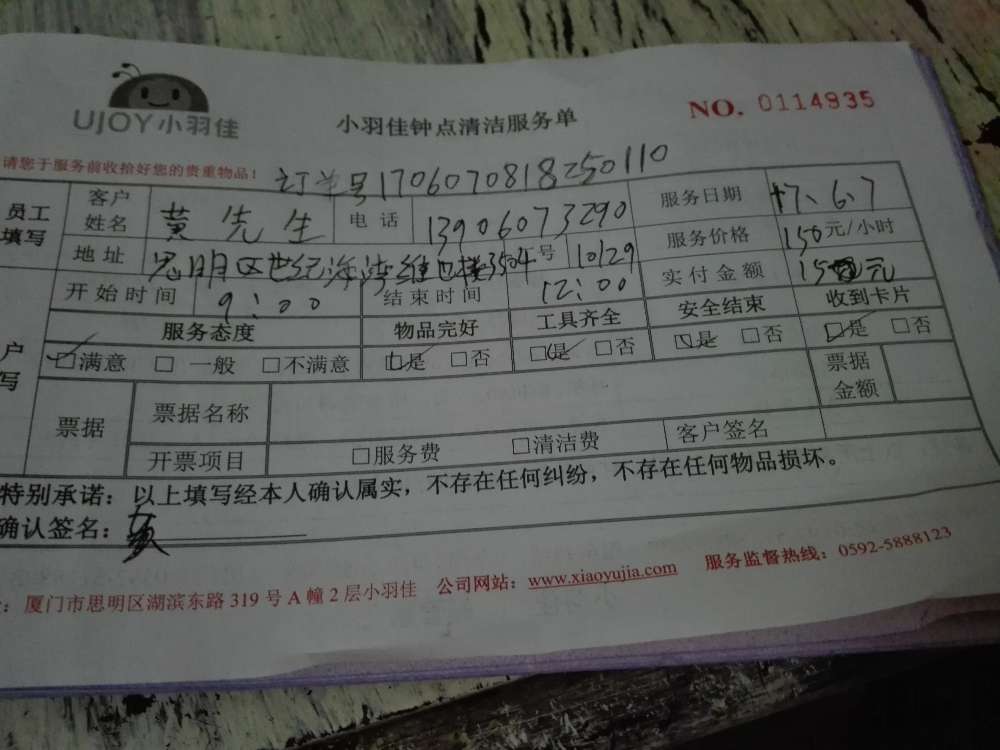 UJOY小羽佳
小羽佳钟点清洁服务单
NO. 0114935
请您于服务前收拾好您的贵重物品!
订单号1706070818250110
员工填写 客户姓名 黄先生 电话 13906073290 服务日期 17.6.7
地址 思明区世纪海湾 3504号 10129 服务价格 150元/小时
开始时间 9:00 结束时间 12:00 实付金额 元
服务态度 物品完好 工具齐全 安全结束 收到卡片
户写 ☑满意 □一般 □不满意 ☑是 □否 ☑是 □否 ☑是 □否 ☑是 □否
票据 票据名称 票据金额
开票项目 □服务费 □清洁费 客户签名
特别承诺:以上填写经本人确认属实,不存在任何纠纷,不存在任何物品损坏。
确认签名:
:厦门市思明区湖滨东路319号A幢2层小羽佳 公司网站:www.xiaoyujia.com 服务监督热线:0592-5888123